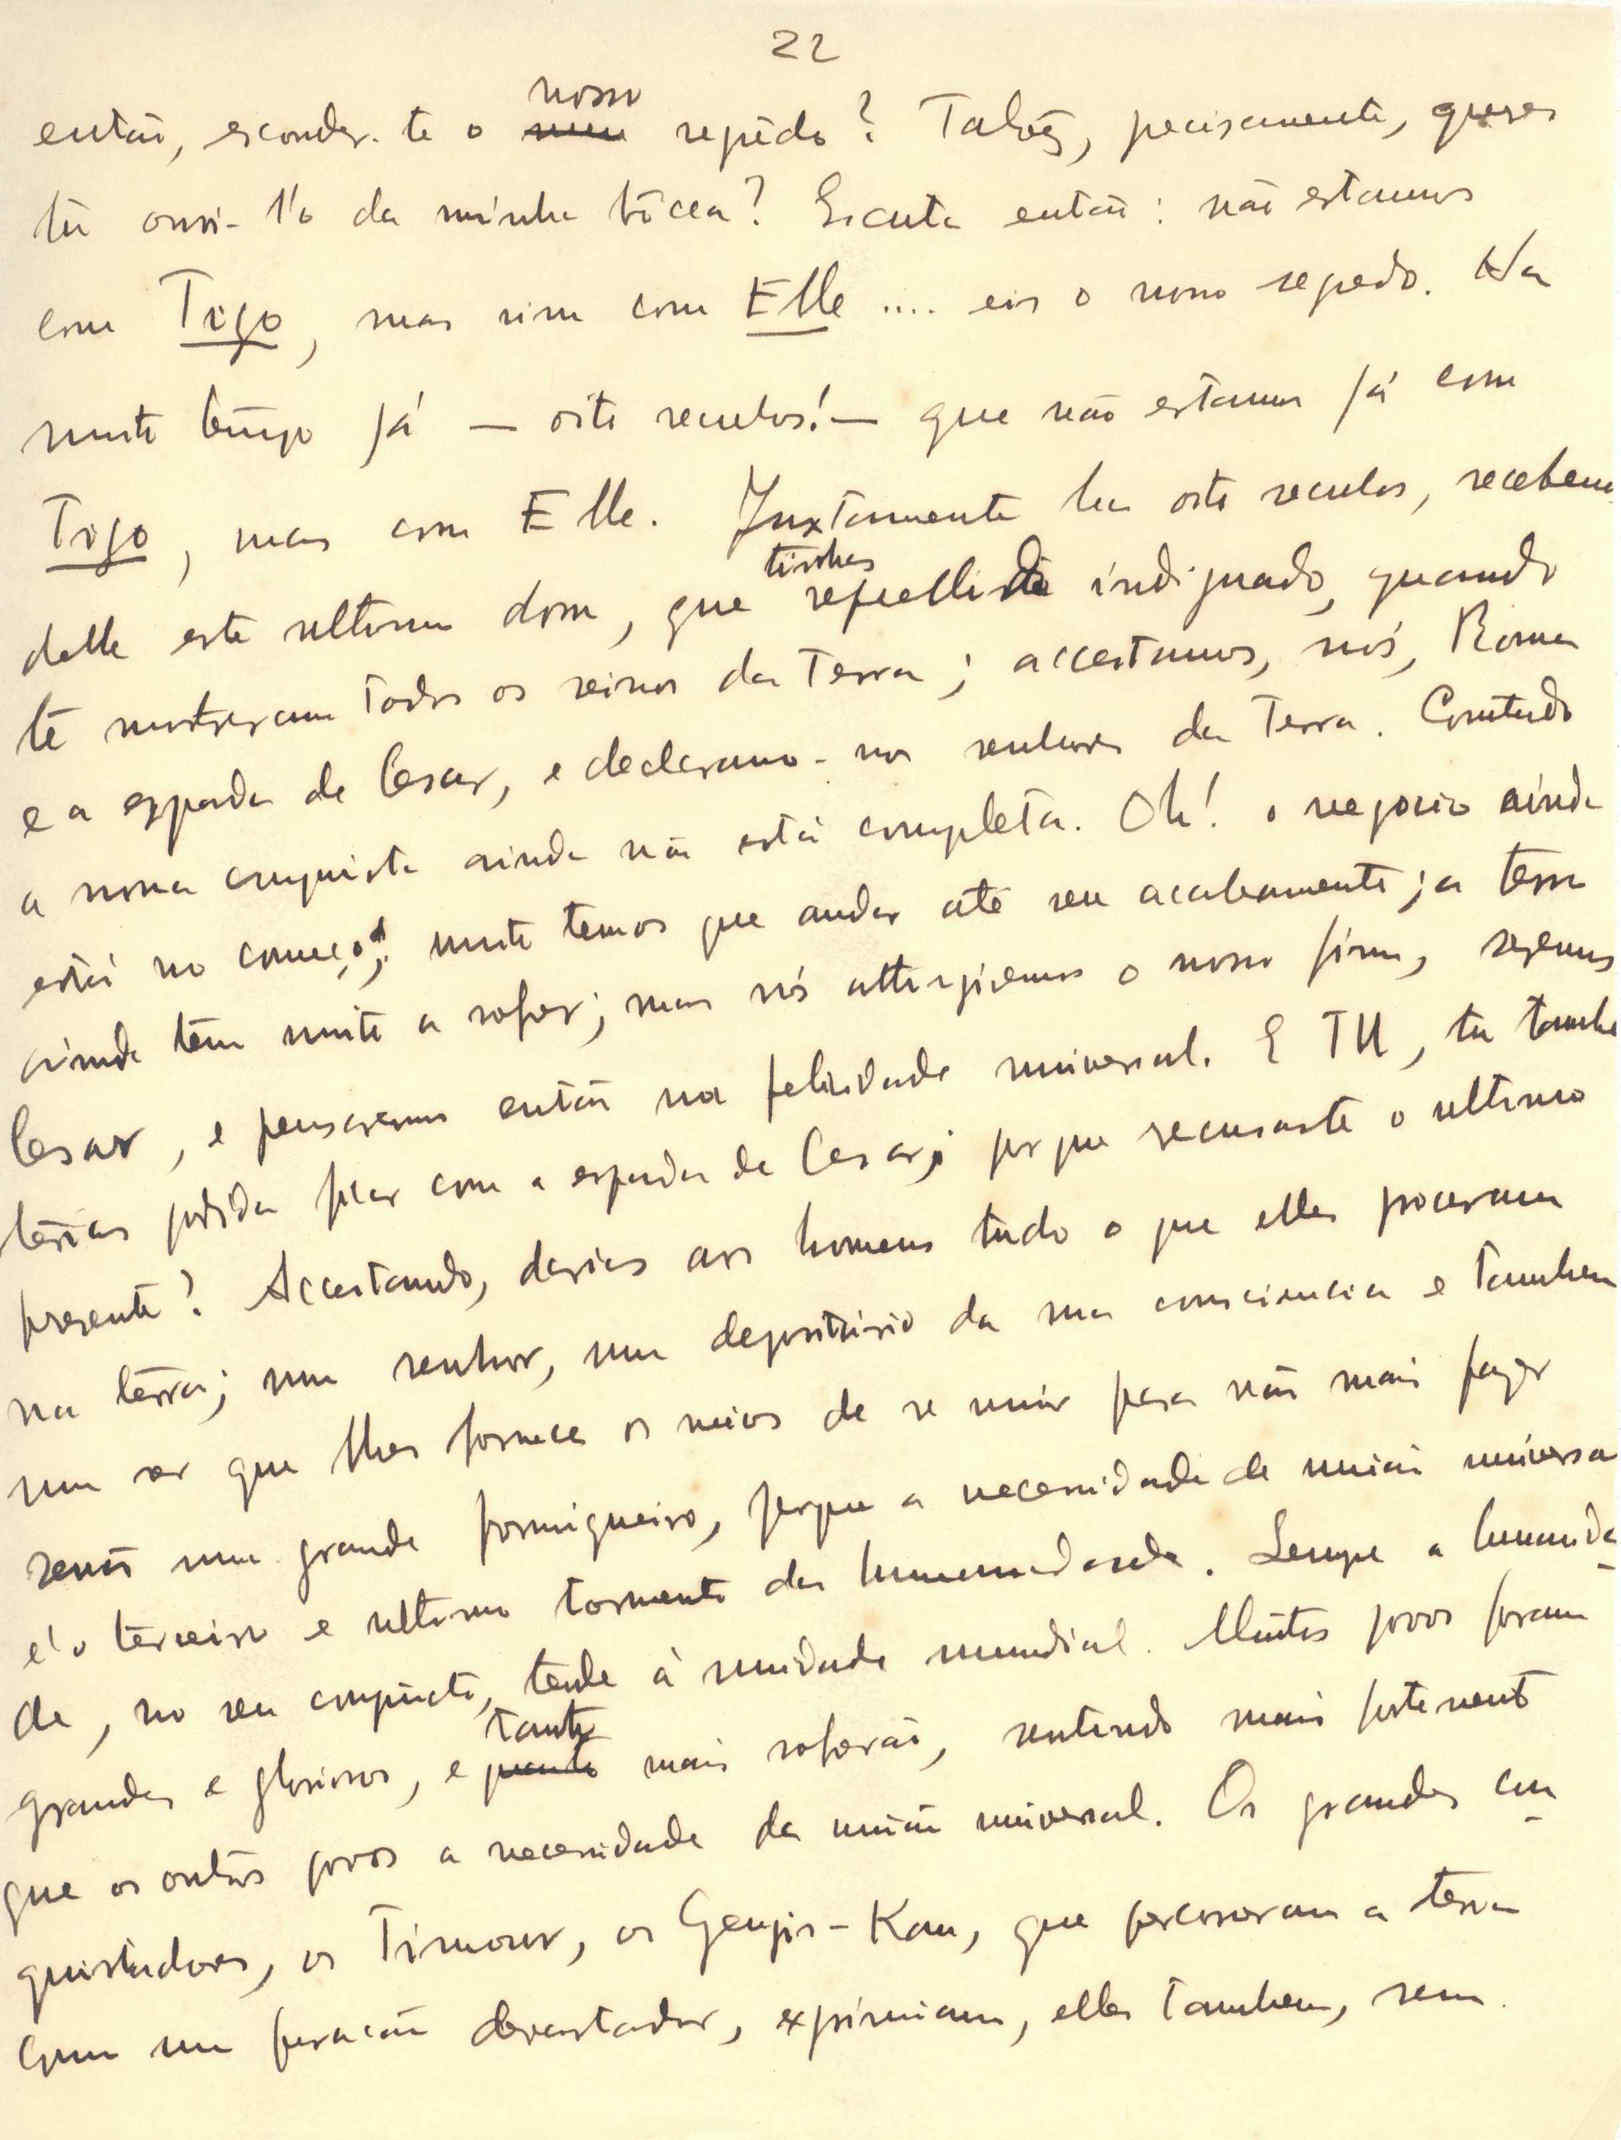 22
então, esconder-te o nosso segrêdo? Talvêz, precisamente, queres
tu ouvi-l'o da minha bôcca? Escuta então: não estamos
com Tigo, mas sim com Elle .... eis o nosso segredo. Ha
muito tempo já — oito seculos! — que não estamos já com
Tigo, mas com Elle. Juxtamente ha oito seculos, recebemos
delle este ultimo dom, que tinhas repellido indignado, quando
te mostraram todos os reinos da Terra; acceitamos, nós, Roma
e a espada de Cesar, e declaramo-nos senhores da Terra. Comtudo
a nossa conquista ainda não está completa. Oh! o negocio ainda
está no começo; muito temos que andar até seu acabamento; a terra
ainda tem muito a sofrer; mas nós attingiremos o nosso fim, seremos
Cesar, e pensaremos então na felicidade universal. E TU, tu tambem
terias podido ficar com a espada de Cesar; por que recusaste o ultimo
presente? Acceitando, darias aos homens tudo o que elles procuram
na terra; um senhor, um depositario da sua consciencia e tambem
um ser que lhes fornece os meios de se unir para não mais fazer
senão um grande formigueiro, porque a necessidade de união universal
é o terceiro e ultimo tormento da humanidade. Sempre a humanida-
de, no seu conjuncto, tende á unidade mundial. Muitos povos foram
grandes e gloriosos, e tanto mais soferão, sentindo mais fortemente
que os outros povos a necessidade da união universal. Os grandes con-
quistadores, os Timour, os Gengis-Kan, que percorreram a terra
como um furacão devastador, exprimiam, elles tambem, sem